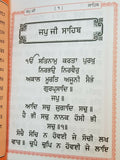 ਜਪੁ ਜੀ ਸਾਹਿਬ
ੴ ਸਤਿਨਾਮੁ ਕਰਤਾ ਪੁਰਖੁ
ਨਿਰਭਉ ਨਿਰਵੈਰੁ
ਅਕਾਲ ਮੂਰਤਿ ਅਜੂਨੀ ਸੈਭੰ
ਗੁਰਪ੍ਰਸਾਦਿ॥
॥ਜਪੁ॥
ਆਦਿ ਸਚੁ ਜੁਗਾਦਿ ਸਚੁ॥
ਹੈ ਭੀ ਸਚੁ ਨਾਨਕ ਹੋਸੀ ਭੀ
ਸਚੁ॥੧॥
ਸੋਚੈ ਸੋਚਿ ਨ ਹੋਵਈ ਜੇ ਸੋਚੀ ਲਖ
ਵਾਰ॥ ਚੁਪੈ ਚੁਪਿ ਨ ਹੋਵਈ ਜੇ ਲਾਇ